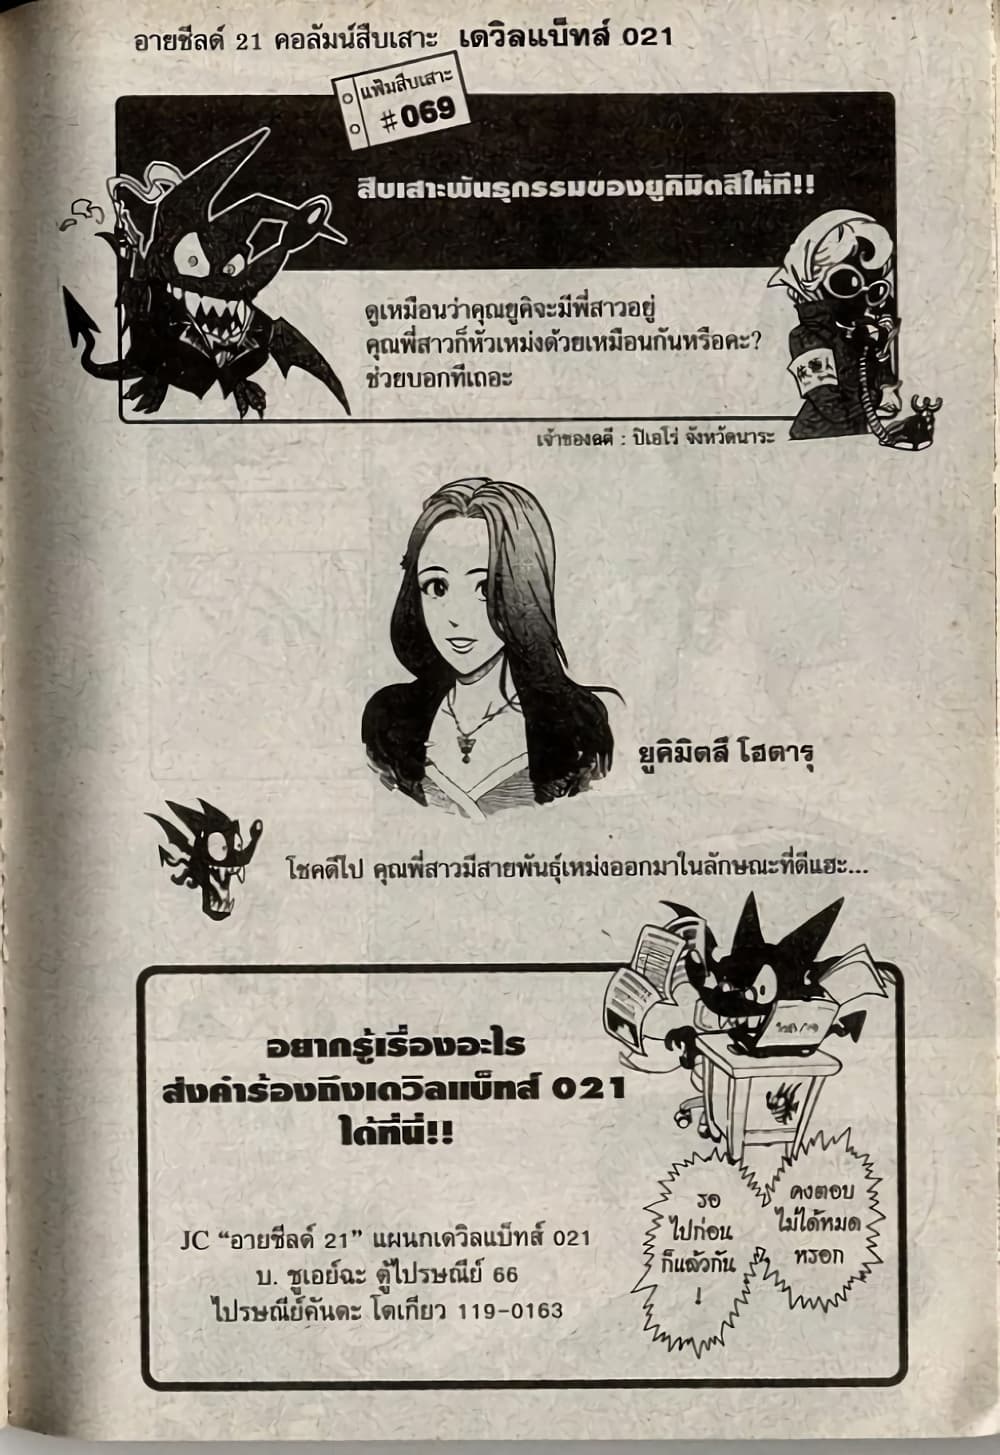 อายชีลด์ 21 คอลัมน์สืบเสาะ เดวิลแบ็ทส์ 021
แฟ้มสืบเสาะ
#069
สืบเสาะพันธุกรรมของยูคิมิตสึให้ที!!
ดูเหมือนว่าคุณยูคิจะมีพี่สาวอยู่
คุณพี่สาวก็หัวเหม่งด้วยเหมือนกันหรือคะ?
ช่วยบอกทีเถอะ
依頼人
เจ้าของคดี : ปิเอโร่ จังหวัดนาระ
ยูคิมิตสึ โฮตารุ
โชคดีไป คุณพี่สาวมีสายพันธุ์เหม่งออกมาในลักษณะที่ดีแฮะ...
อยากรู้เรื่องอะไร
ส่งคำร้องถึงเดวิลแบ็ทส์ 021
ได้ที่นี่!!
JC “อายชีลด์ 21” แผนกเดวิลแบ็ทส์ 021
บ. ชูเอย์ฉะ ตู้ไปรษณีย์ 66
ไปรษณีย์คันดะ โตเกียว 119-0163
คงตอบ
ไม่ได้หมด
หรอก
รอ
ไปก่อน
ก็แล้วกัน
!